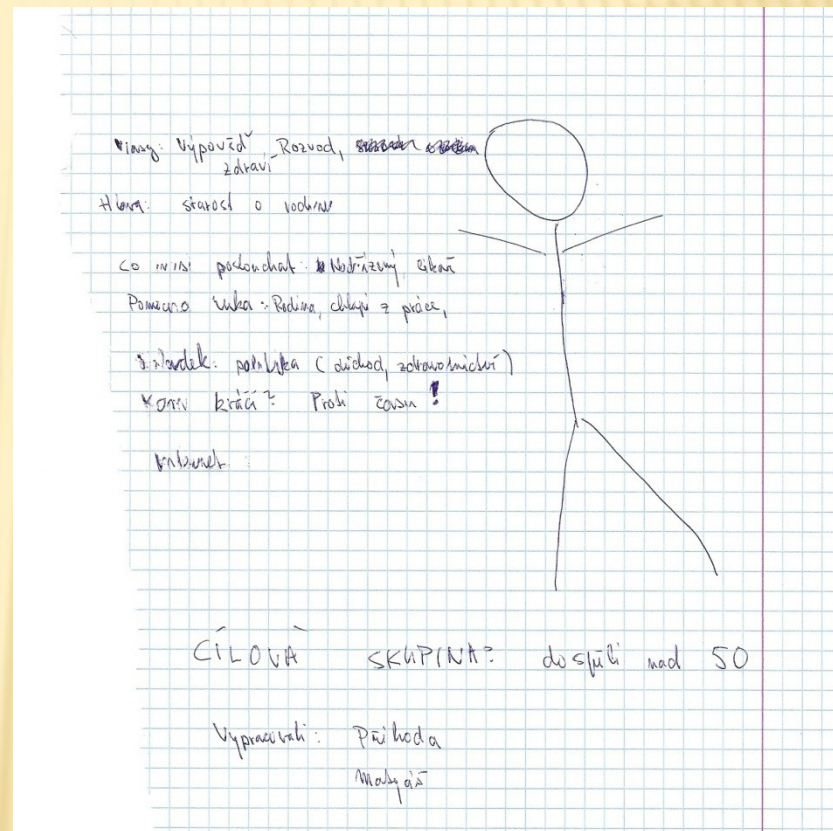 Vlasy: Výpověď, Rozvod,
zdraví
Hlava: starost o rodinu
Co musí poslouchat: Nadřízený, lékař
Pomocná ruka: Rodina, chlapi z práce,
Žaludek: politika (důchod, zdravotnictví)
Kam kráčí? Proti času!
CÍLOVÁ SKUPINA: dospělí nad 50
Vypracovali: Příhoda
Matyáš